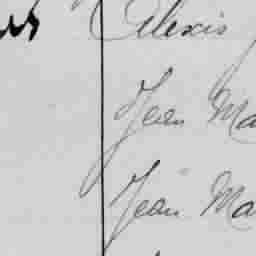 Alexis
Jean Ma
Jean Ma